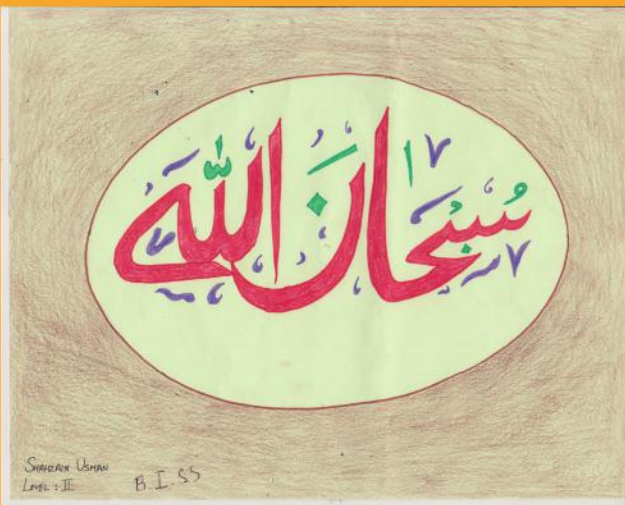 سُبْحَانَ اللّٰه
SHAHZAIN USMAN
LEVEL : II
B.I.SS